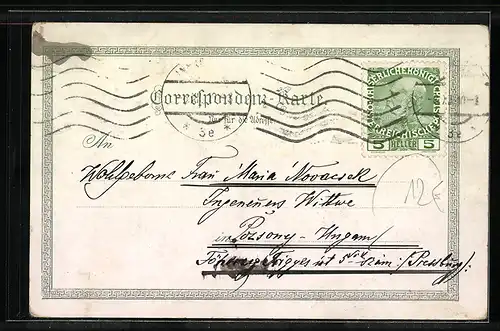 Correspondenz-Karte
Nur für die Adresse
KAISERLICHE KÖNIGLICHE
ÖSTERREICHISCHE
5 HELLER 5
3e
3e
An
Wohlgeborne Frau Maria Novacsek
Ingenieurs Wittwe
in Pozsony - Ungarn
12€
(Pressburg)